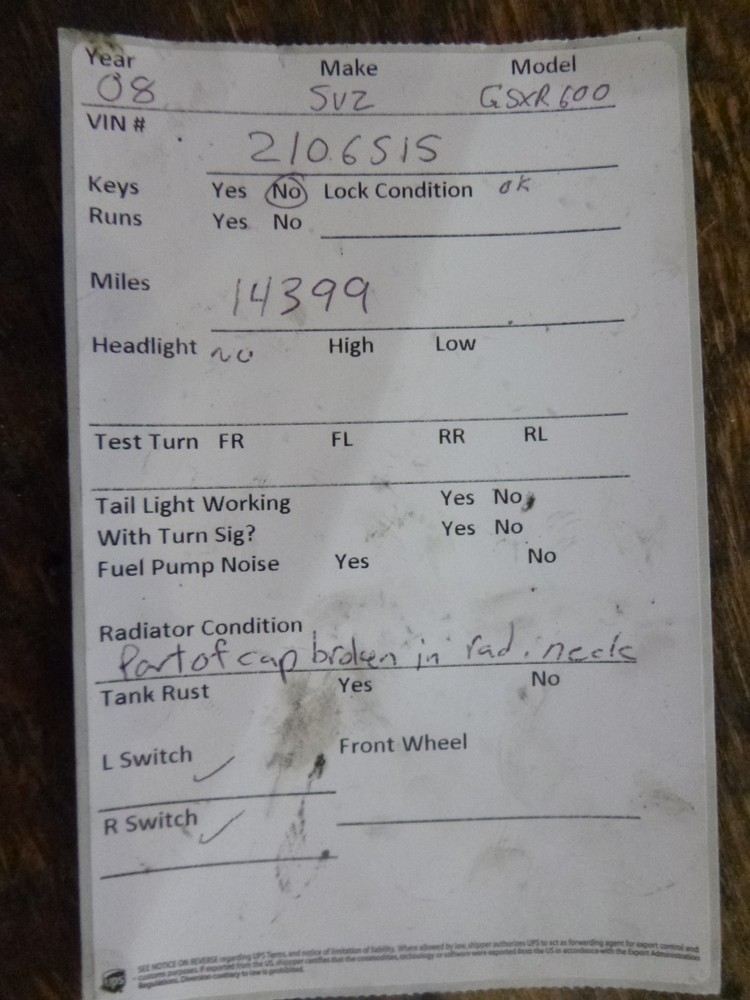 Year Make Model
08 SUZ GSXR600
VIN #
2106515
Keys Yes No Lock Condition ok
Runs Yes No
Miles 14399
Headlight no High Low
Test Turn FR FL RR RL
Tail Light Working Yes No
With Turn Sig? Yes No
Fuel Pump Noise Yes No
Radiator Condition
Part of cap broken in rad. neck
Tank Rust Yes No
L Switch ✓ Front Wheel
R Switch ✓
SEE NOTICE ON REVERSE regarding UPS Terms, and notice of limitation of liability. Where allowed by law, shipper authorizes UPS to act as forwarding agent for export control and
customs purposes. If exported from the US, shipper certifies that the commodities, technology or software were exported from the US in accordance with the Export Administration
Regulations. Diversion contrary to law is prohibited.